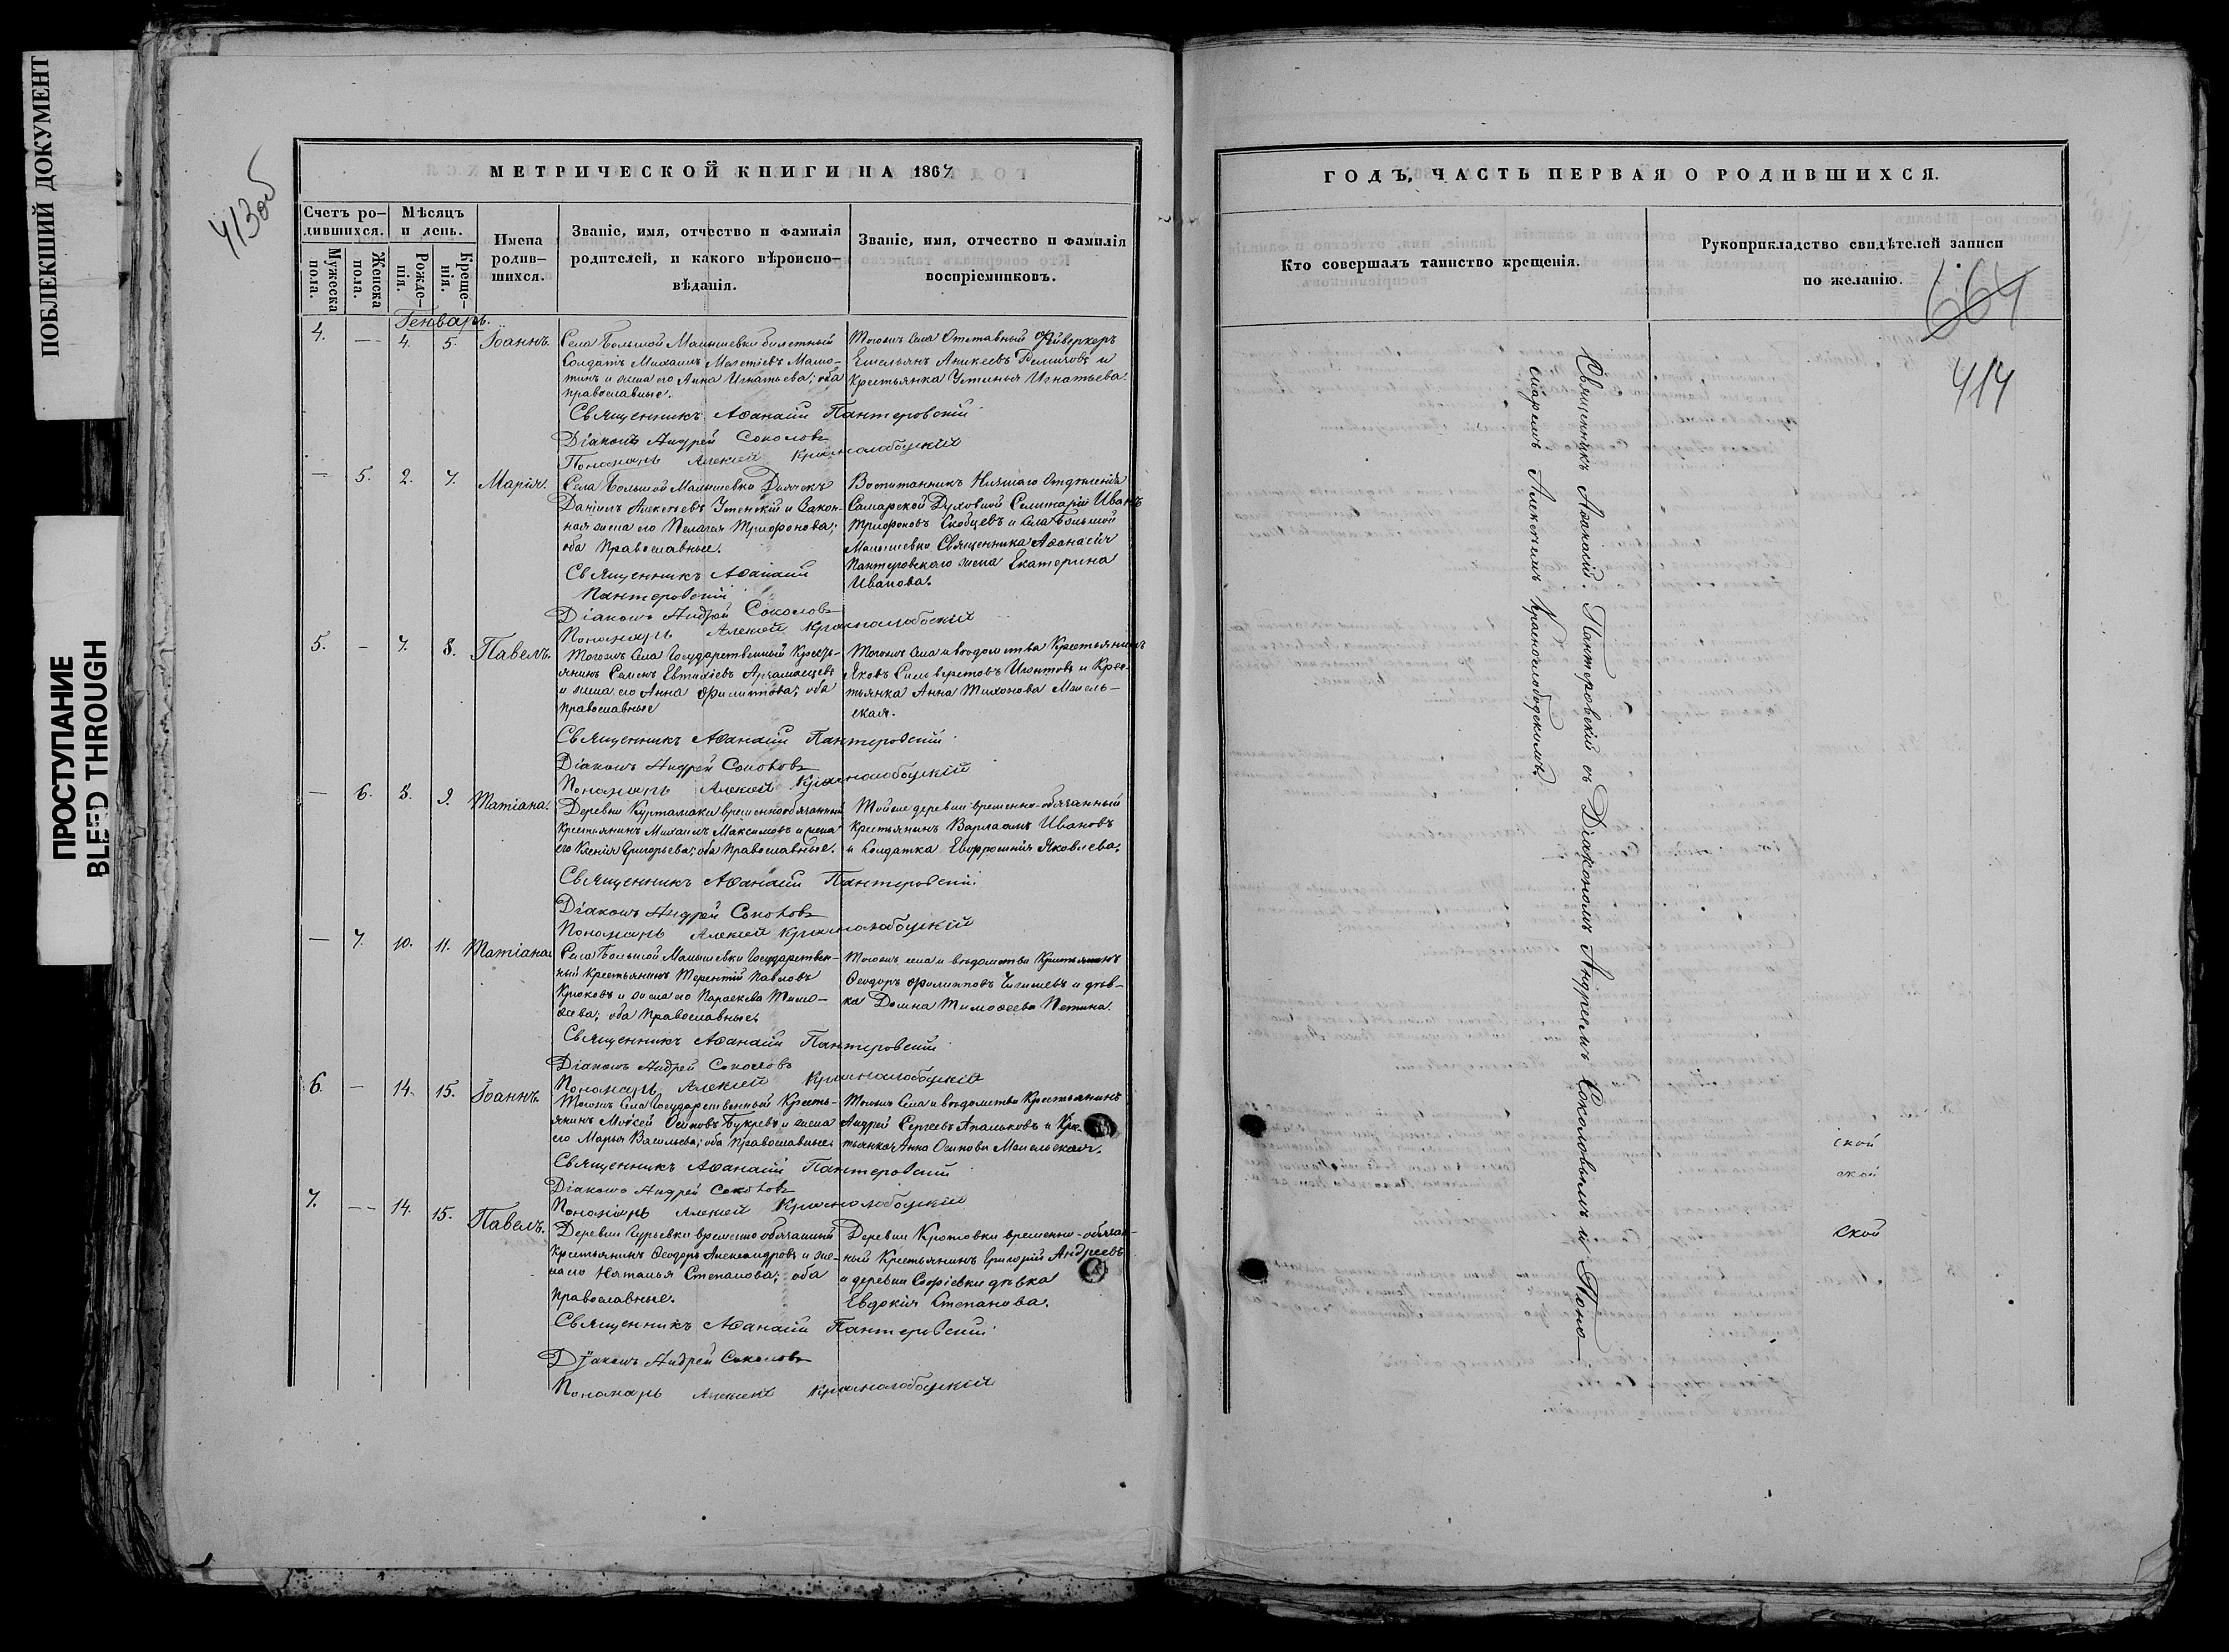 ПОБЛЕКШИЙ ДОКУМЕНТ
ПРОСТУПАНИЕ
BLEED THROUGH
413об
МЕТРИЧЕСКОЙ КНИГИ НА 1867
Счетъ ро-
дившихся.
Мужеска
пола.
Женска
пола.
Мѣсяцъ
и день.
Рожде-
нія.
Креще-
нія.
Имена
родив-
шихся.
Званіе, имя, отчество и фамилія
родителей, и какого вѣроиспо-
вѣданія.
Званіе, имя, отчество и фамилія
воспріемниковъ.
Генварь.
4. — 4. 5. Іоаннъ.
Села Большой Малышевки билетный
Солдатъ Михаилъ
и жена его Анна Игнатьева; оба
православные.
Тогожъ Села Отставный Фейверкеръ
Емельянъ Аникеевъ и
Крестьянка Устинья Игнатьева.
Священникъ Аѳанасій Пантеровскій
Діаконъ Андрей Соколовъ
Пономарь Алексей Краснослободскій
— 5. 2. 7. Марія.
Села Большой Малышевки Дьячекъ
Даніилъ Алексеевъ Успенскій и Закон-
ная жена его Пелагея Трифонова;
оба Православные.
Воспитанникъ Низшаго Отдѣленія
Самарской Духовной Семинаріи Иванъ
Трифоновъ Скобцевъ и Села Большой
Малышевки Священника Аѳанасія
Пантеровскаго жена Екатерина
Иванова.
Священникъ Аѳанасій
Пантеровскій
Діаконъ Андрей Соколовъ
Пономарь Алексей Краснослободскій
5. — 7. 8. Павелъ.
Тогожъ Села Государственный Кресть-
янинъ Семенъ Евтихіевъ Арзамасцевъ
и жена его Анна Филиппова; оба
Православные
Тогожъ Села и вѣдомства Крестьянинъ
Яковъ Сильверстовъ и Крес-
тьянка Анна Тихонова Мзель-
ская.
Священникъ Аѳанасій Пантеровскій
Діаконъ Андрей Соколовъ
Пономарь Алексей Краснослободскій
— 6. 8. 9. Татіана.
Деревни Куртамаки временнообязанный
Крестьянинъ Михаилъ Максимовъ и жена
его Ксенія Григорьева; оба Православные.
Тойже деревни временно-обязанный
Крестьянинъ Варлаамъ Ивановъ
и Солдатка Евфросинія Яковлева.
Священникъ Аѳанасій Пантеровскій
Діаконъ Андрей Соколовъ
Пономарь Алексей Краснослободскій
— 7. 10. 11. Татіана
Села Большой Малышевки Государствен-
ный Крестьянинъ Терентій Павловъ
Крюковъ и жена его Параскева Тимо-
ѳеева; оба Православные.
Тогожъ села и вѣдомства Крестьянинъ
Ѳеодоръ Филипповъ и дѣв-
ка Домна Тимоѳеева Петина.
Священникъ Аѳанасій Пантеровскій
Діаконъ Андрей Соколовъ
Пономарь Алексей Краснослободскій
6. — 14. 15. Іоаннъ.
Тогожъ Села Государственный Кресть-
янинъ Моисей Осиповъ Букревъ и жена
его Марья Васильева; оба Православные.
Тогожъ Села и вѣдомства Крестьянинъ
Андрей Сергеевъ Апальковъ и Крес-
тьянка Анна Осипова
Священникъ Аѳанасій Пантеровскій
Діаконъ Андрей Соколовъ
Пономарь Алексей Краснослободскій
7. — 14. 15. Павелъ.
Деревни временно обязанный
Крестьянинъ Ѳеодоръ Александровъ и же-
на его Наталья Степанова; оба
Православные.
Деревни Кротовки временно-обязан-
ный Крестьянинъ Григорій Андреевъ
и деревни Софіевки дѣвка
Евдокія Степанова.
Священникъ Аѳанасій Пантеровскій
Діаконъ Андрей Соколовъ
Пономарь Алексей Краснослободскій
ГОДЪ, ЧАСТЬ ПЕРВАЯ О РОДИВШИХСЯ.
Кто совершалъ таинство крещенія.
Рукоприкладство свидѣтелей записи
по желанію.
664
414
Священникъ Аѳанасій Пантеровскій съ Діакономъ Андреемъ Соколовымъ и Поно-
маремъ Алексѣемъ Краснослободскимъ.
ской
ской
ской